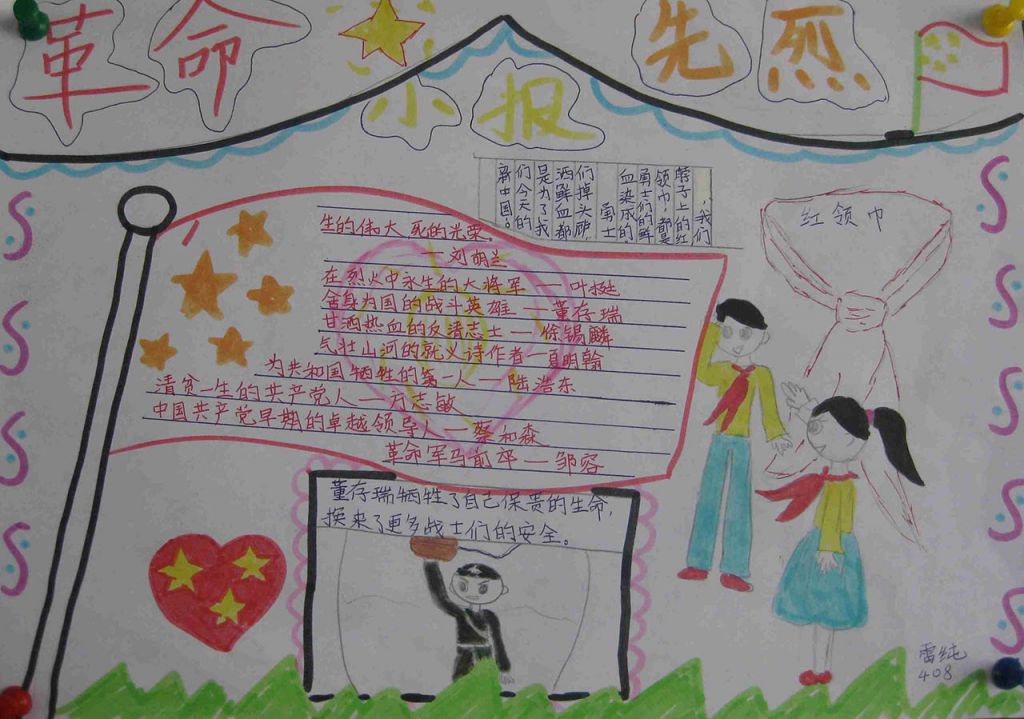 革命
先烈
小报
，我们
脖子上的红
领巾，都是
勇士们的鲜
血染成的
勇士
们掉头颅
洒鲜血都
是为了我
们今天的
新中国。
红领巾
生的伟大死的光荣。
—刘胡兰
在烈火中永生的大将军—叶挺
舍身为国的战斗英雄—董存瑞
甘洒热血的反清志士—徐锡麟
气壮山河的就义诗作者—夏明翰
为共和国牺牲的第一人—陆浩东
清贫一生的共产党人—方志敏
中国共产党早期的卓越领导人—蔡和森
革命军马前卒—邹容
董存瑞牺牲了自己保贵的生命，
换来了更多战士们的安全。
雷纯
408